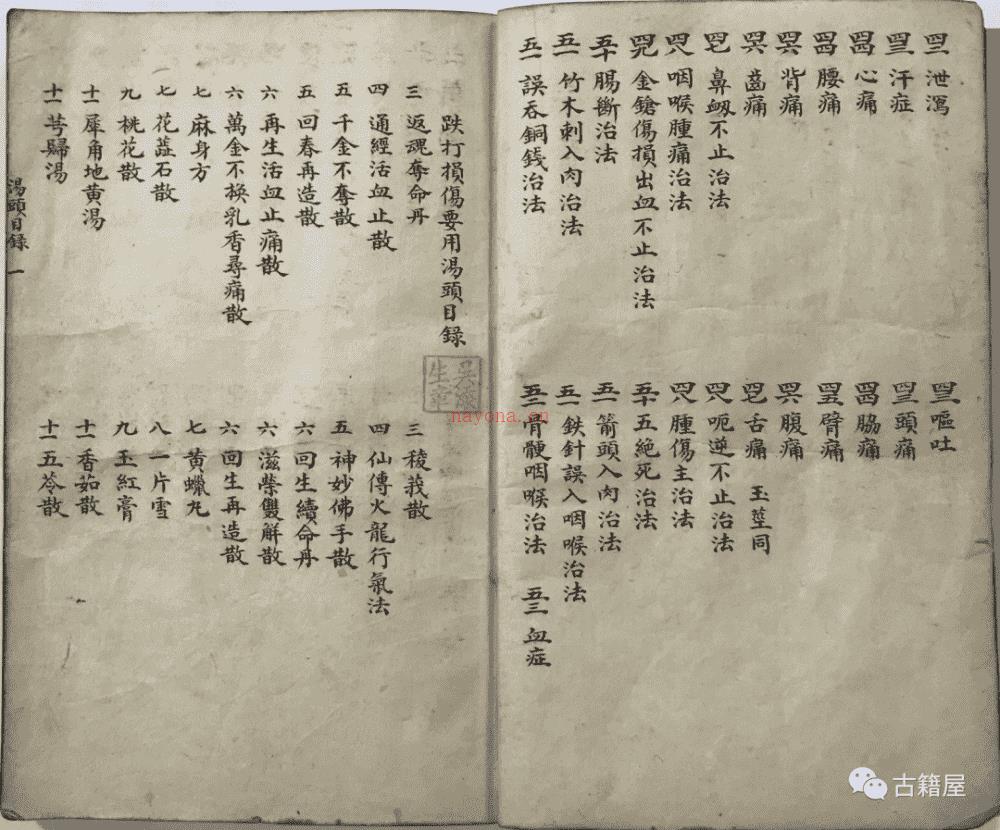 四二 泄瀉 四三 嘔吐
四三 汗症 四三 頭痛
四四 心痛 四四 脇痛
四四 腰痛 四五 臂痛
四六 背痛 四六 腹痛
四六 齒痛 四七 舌痛 玉莖同
四七 鼻衂不止治法 四八 呃逆不止治法
四八 咽喉腫痛治法 四八 腫傷主治法
四九 金鎗傷損出血不止治法 五十 五絕死治法
五十 腸斷治法 五一 箭頭入肉治法
五一 竹木刺入肉治法 五一 鉄針誤入咽喉治法
五一 誤吞銅錢治法 五二 骨骾咽喉治法 五三 血症
跌打損傷要用湯頭目錄
三 返魂奪命丹 三 稜莪散
四 通經活血止散 四 仙傳火龍行氣法
五 千金不奪散 五 神妙佛手散
五 回春再造散 六 回生續命丹
六 再生活血止痛散 六 滋榮雙解散
六 萬金不換乳香尋痛散 六 回生再造散
七 麻身方 七 黃蠟丸
七 花蕊石散 八 一片雪
九 桃花散 九 玉紅膏
十一 犀角地黄湯 十一 香茹散
十一 芎歸湯 十一 五苓散
湯頭目錄 一
nayona.cn
古籍屋